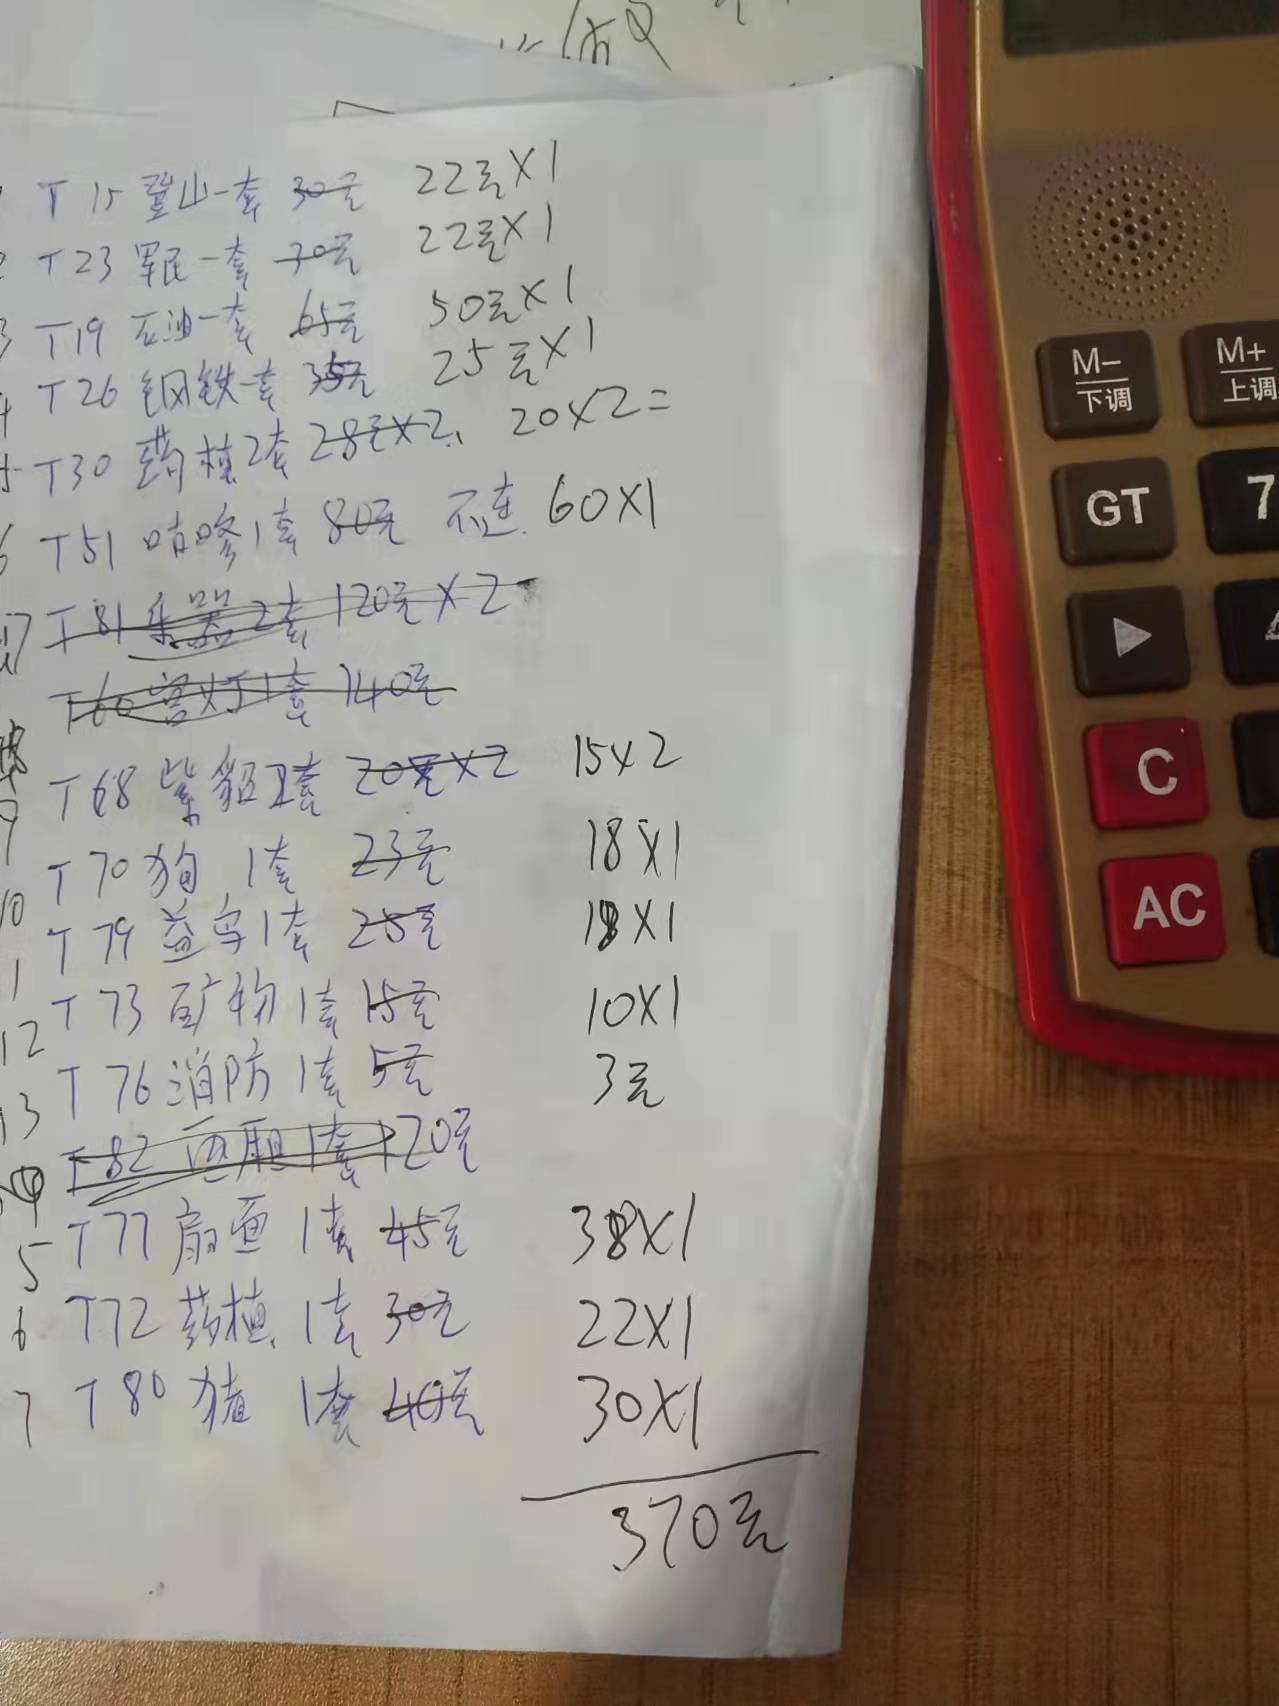 T15 登山一套 30元 22元×1
T23 军民一套 30元 22元×1
3 T19 石油一套 65元 50元×1
4 T26 钢铁一套 35元 25元×1
T30 药植2套 28元×2、 20×2=
6 T51 咕咚1套 80元 不连. 60×1
7 T81 乐器2套 120元×2
T60 宫灯1套 140元
T68 紫貂2套 20元×2 15×2
9 T70 狗 1套 23元 18×1
10 T79 益鸟1套 25元 18×1
1 T73 矿物1套 15元 10×1
12 T76 消防1套 5元 3元
13 T82 西厢1套 120元
T77 扇画 1套 45元 38×1
5 T72 药植 1套 30元 22×1
6 T80 猪 1套 40元 30×1
7
370元
M-
下调
M+
上调
GT
7
C
AC